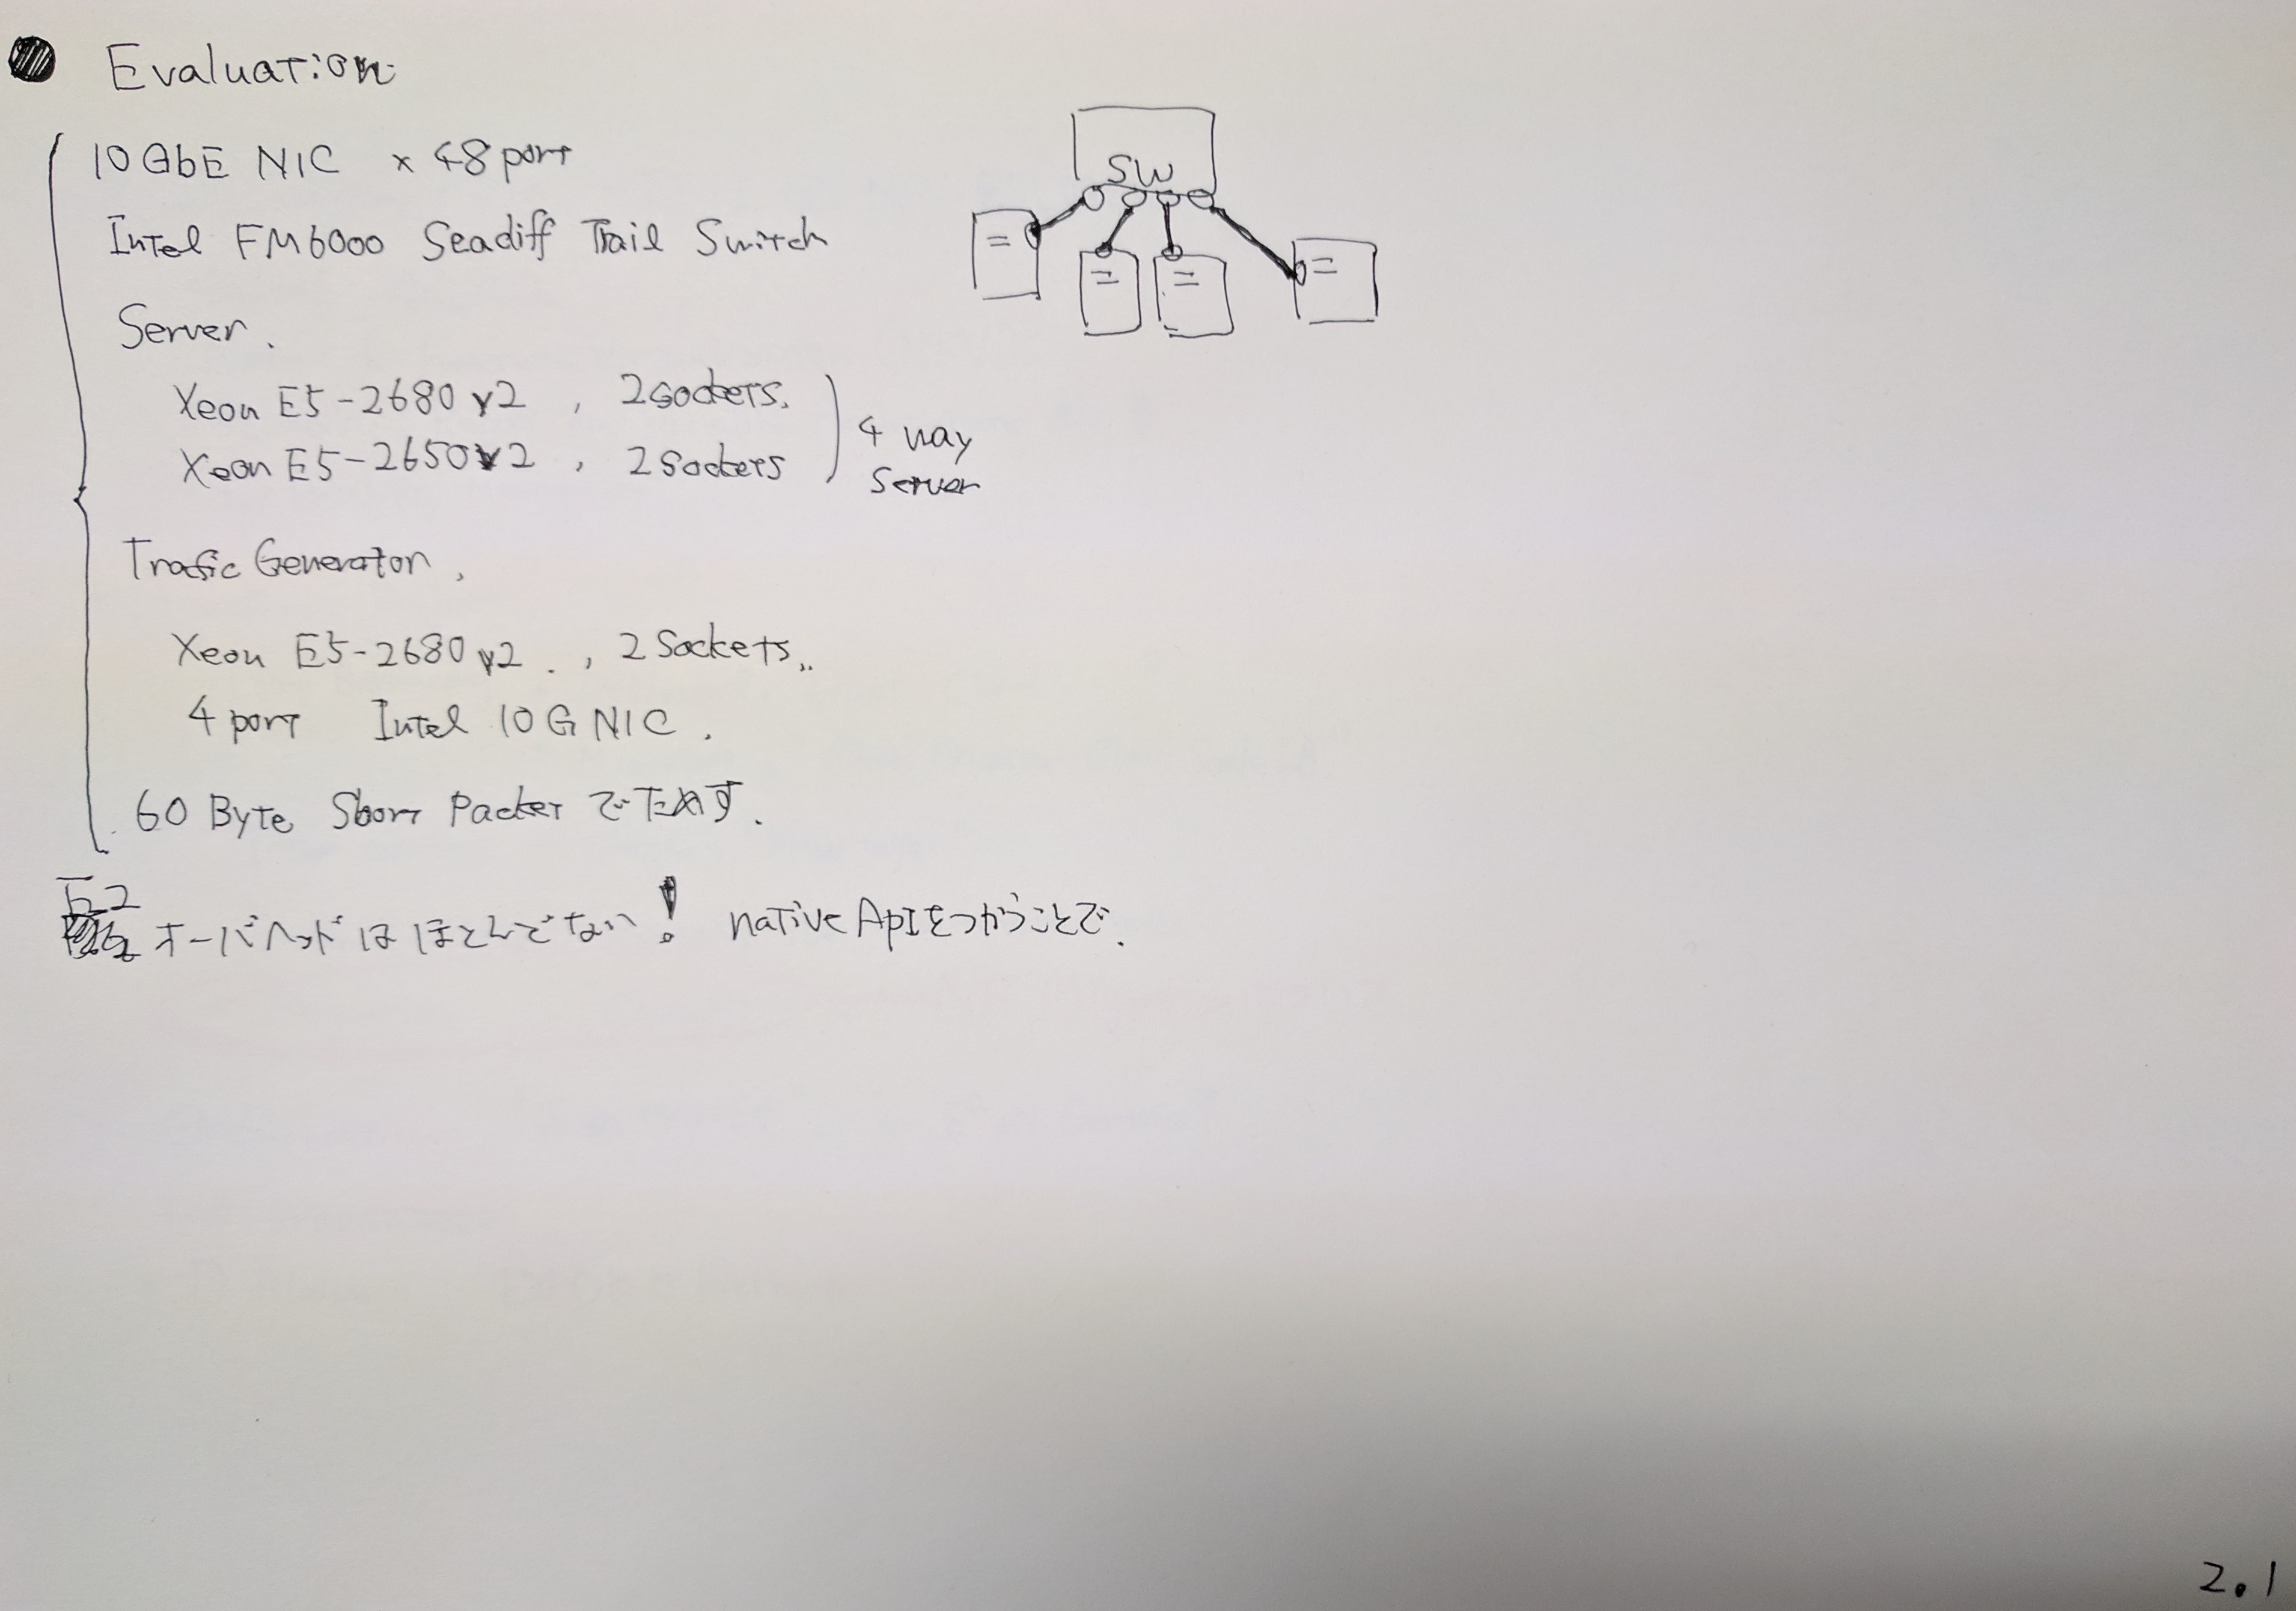 Evaluation
10GbE NIC × 48 port
Intel FM6000 Seadiff Trail Switch
SW
Server.
Xeon E5-2680 v2 , 2 sockets.
Xeon E5-2650 v2 , 2 Sockets
4 way
Server
Trafic Generator,
Xeon E5-2680 v2 . , 2 Sockets..
4 port Intel 10G NIC.
60 Byte Short Packet でためす.
E2
オーバヘッドはほとんどでない! native ApIをつかうことで.
2.1